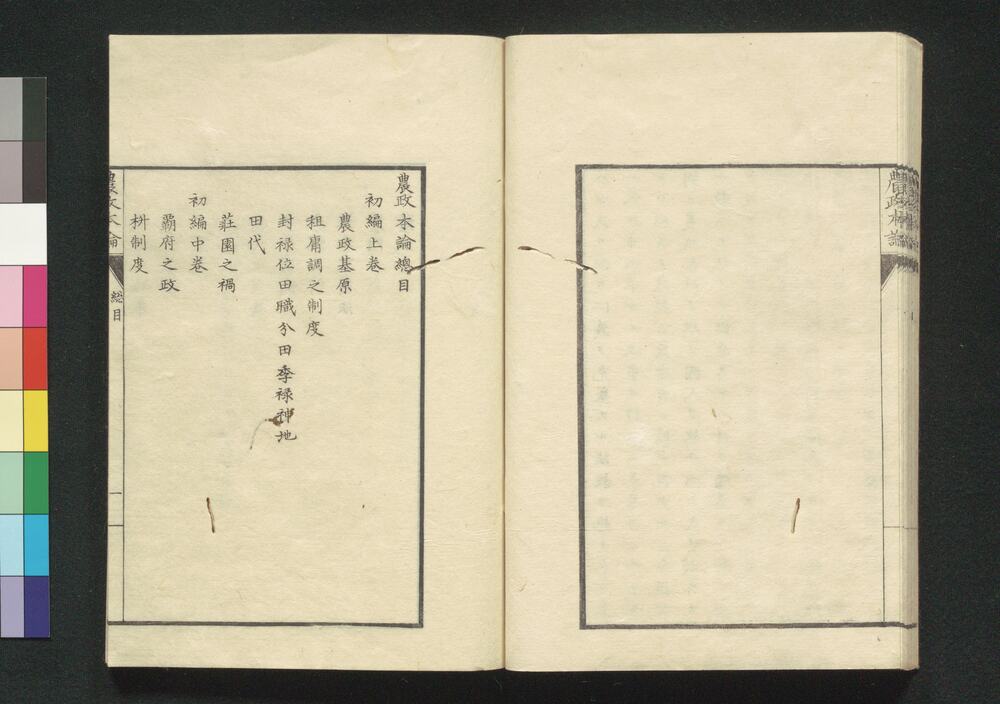 農政本論
農政本論總目
初編上巻
農政基原
租庸調之制度
封禄位田職分田季禄神地
田代
莊園之禍
初編中巻
覇府之政
枡制度
農政本論
総目
一